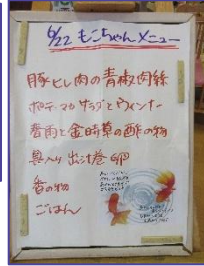 6/22 もこちゃんメニュー
豚ヒレ肉の青椒肉絲
ポテ-マカサラダとウィンナー
春雨と金時草の酢の物
具入り出汁巻卵
香の物
ごはん